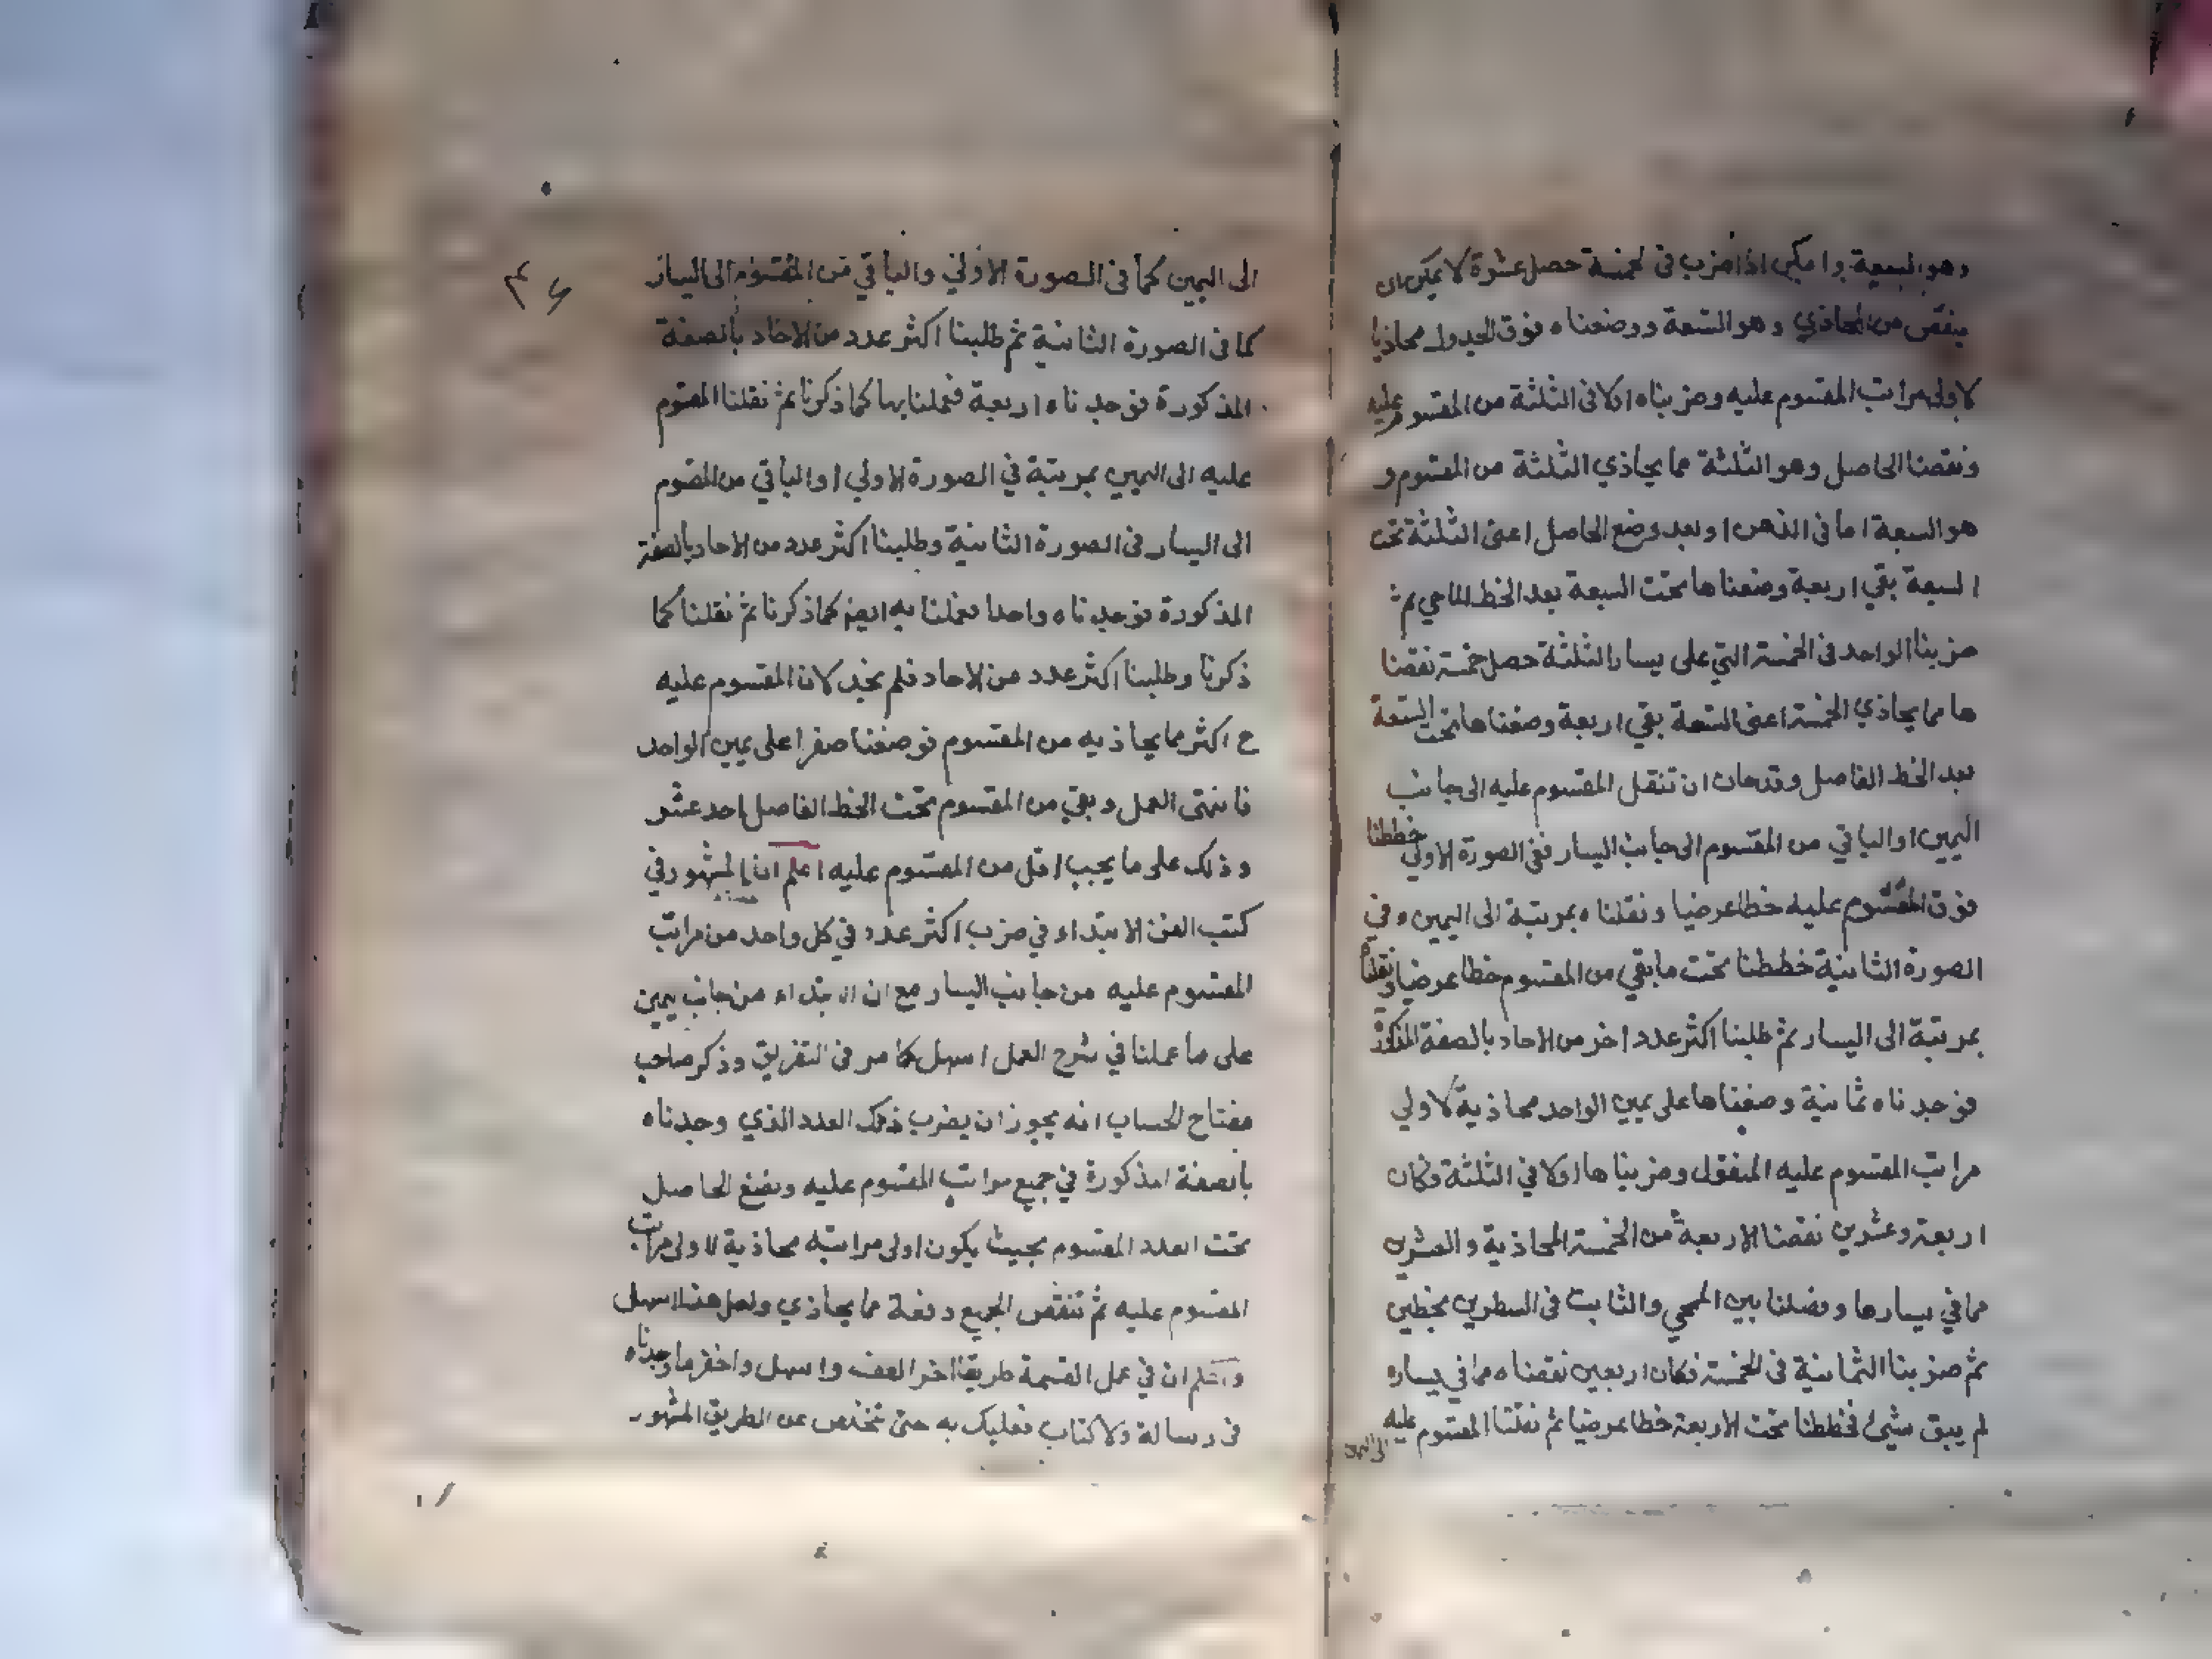 وهو السبعة وامكن اذا ضرب فى الخمسة حصل عشرة لا يمكن ان
ينقص من المحاذي وهو التسعة ووضعناه فوق الجدول محاذيا
لاولى مراتب المقسوم عليه وضربناه اولا فى الثلثة من المقسوم عليه
ونقصنا الحاصل وهو الثلثة مما يحاذي الثلثة من المقسوم و
هو السبعة اما فى الذهن او بعد وضع الحاصل اعنى الثلثة تحت
السبعة بقي اربعة وضعناها تحت السبعة بعد الخط الماحي ثم
ضربنا الواحد فى الخمسة التي على يسار الثلثة حصل خمسة نقصنا
ها مما يحاذي الخمسة اعنى التسعة بقي اربعة وضعناها تحت التسعة
بعد الخط الفاصل وقد حان ان تنقل المقسوم عليه الى جانب
اليمين او الباقي من المقسوم الى جانب اليسار ففى الصورة الاولي خططنا
فوق المقسوم عليه خطا عرضيا ونقلناه بمرتبة الى اليمين وفي
الصورة الثانية خططنا تحت ما بقي من المقسوم خطا عرضيا ونقلناه
بمرتبة الى اليسار ثم طلبنا اكثر عدد اخر من الاحاد بالصفة المذكورة
فوجدناه ثمانية وضعناها على يمين الواحد محاذية لاولي
مراتب المقسوم عليه المنقول وضربناها اولا في الثلثة فكان
اربعة وعشرين نقصنا الاربعة من الخمسة المحاذية والعشرين
مما في يسارها وفصلنا بين الممحي والثابت فى السطرين بخطين
ثم ضربنا الثمانية فى الخمسة فكان اربعين نقصناه مما في يساره
لم يبق شيئ فخططنا تحت الاربعة خطا عرضيا ثم نقلنا المقسوم عليه
الى اليمين
٤٦
الى اليمين كما فى الصورة الاولي والباقي من المقسوم الى اليسار
كما فى الصورة الثانية ثم طلبنا اكثر عدد من الاحاد بالصفة
المذكورة فوجدناه اربعة فعملنا بها كما ذكرنا ثم نقلنا المقسوم
عليه الى اليمين بمرتبة في الصورة الاولي او الباقي من المقسوم
الى اليسار فى الصورة الثانية وطلبنا اكثر عدد من الاحاد بالصفة
المذكورة فوجدناه واحدا فعملنا به ايضا كما ذكرنا ثم نقلنا كما
ذكرنا وطلبنا اكثر عدد من الاحاد فلم نجد لان المقسوم عليه
ح اكثر مما يحاذيه من المقسوم فوضعنا صفرا على يمين الواحد
فانتهى العمل وبقي من المقسوم تحت الخط الفاصل احد عشر
وذلك على ما يجب اقل من المقسوم عليه اعلم ان المشهور في
كتب الفن الابتداء في ضرب اكثر عدد في كل واحد من مراتب
المقسوم عليه من جانب اليسار مع ان الابتداء من جانب يمين
على ما عملنا في شرح العمل اسهل كما مر فى التفريق وذكر صاحب
مفتاح الحساب انه يجوز ان يضرب ذلك العدد الذي وجدناه
بالصفة المذكورة في جميع مراتب المقسوم عليه ونضع الحاصل
تحت العدد المقسوم بحيث يكون اولى مراتبه محاذية لاولى مراتب
المقسوم عليه ثم تنقص الجميع دفعة مما يحاذي ولعل هذا اسهل
واعلم ان في عمل القسمة طريقا اخر الطف واسهل واخصر ما وجدناه
فى رسالة ولا كتاب فعليك به حتى تخلص عن الطريق المشهور